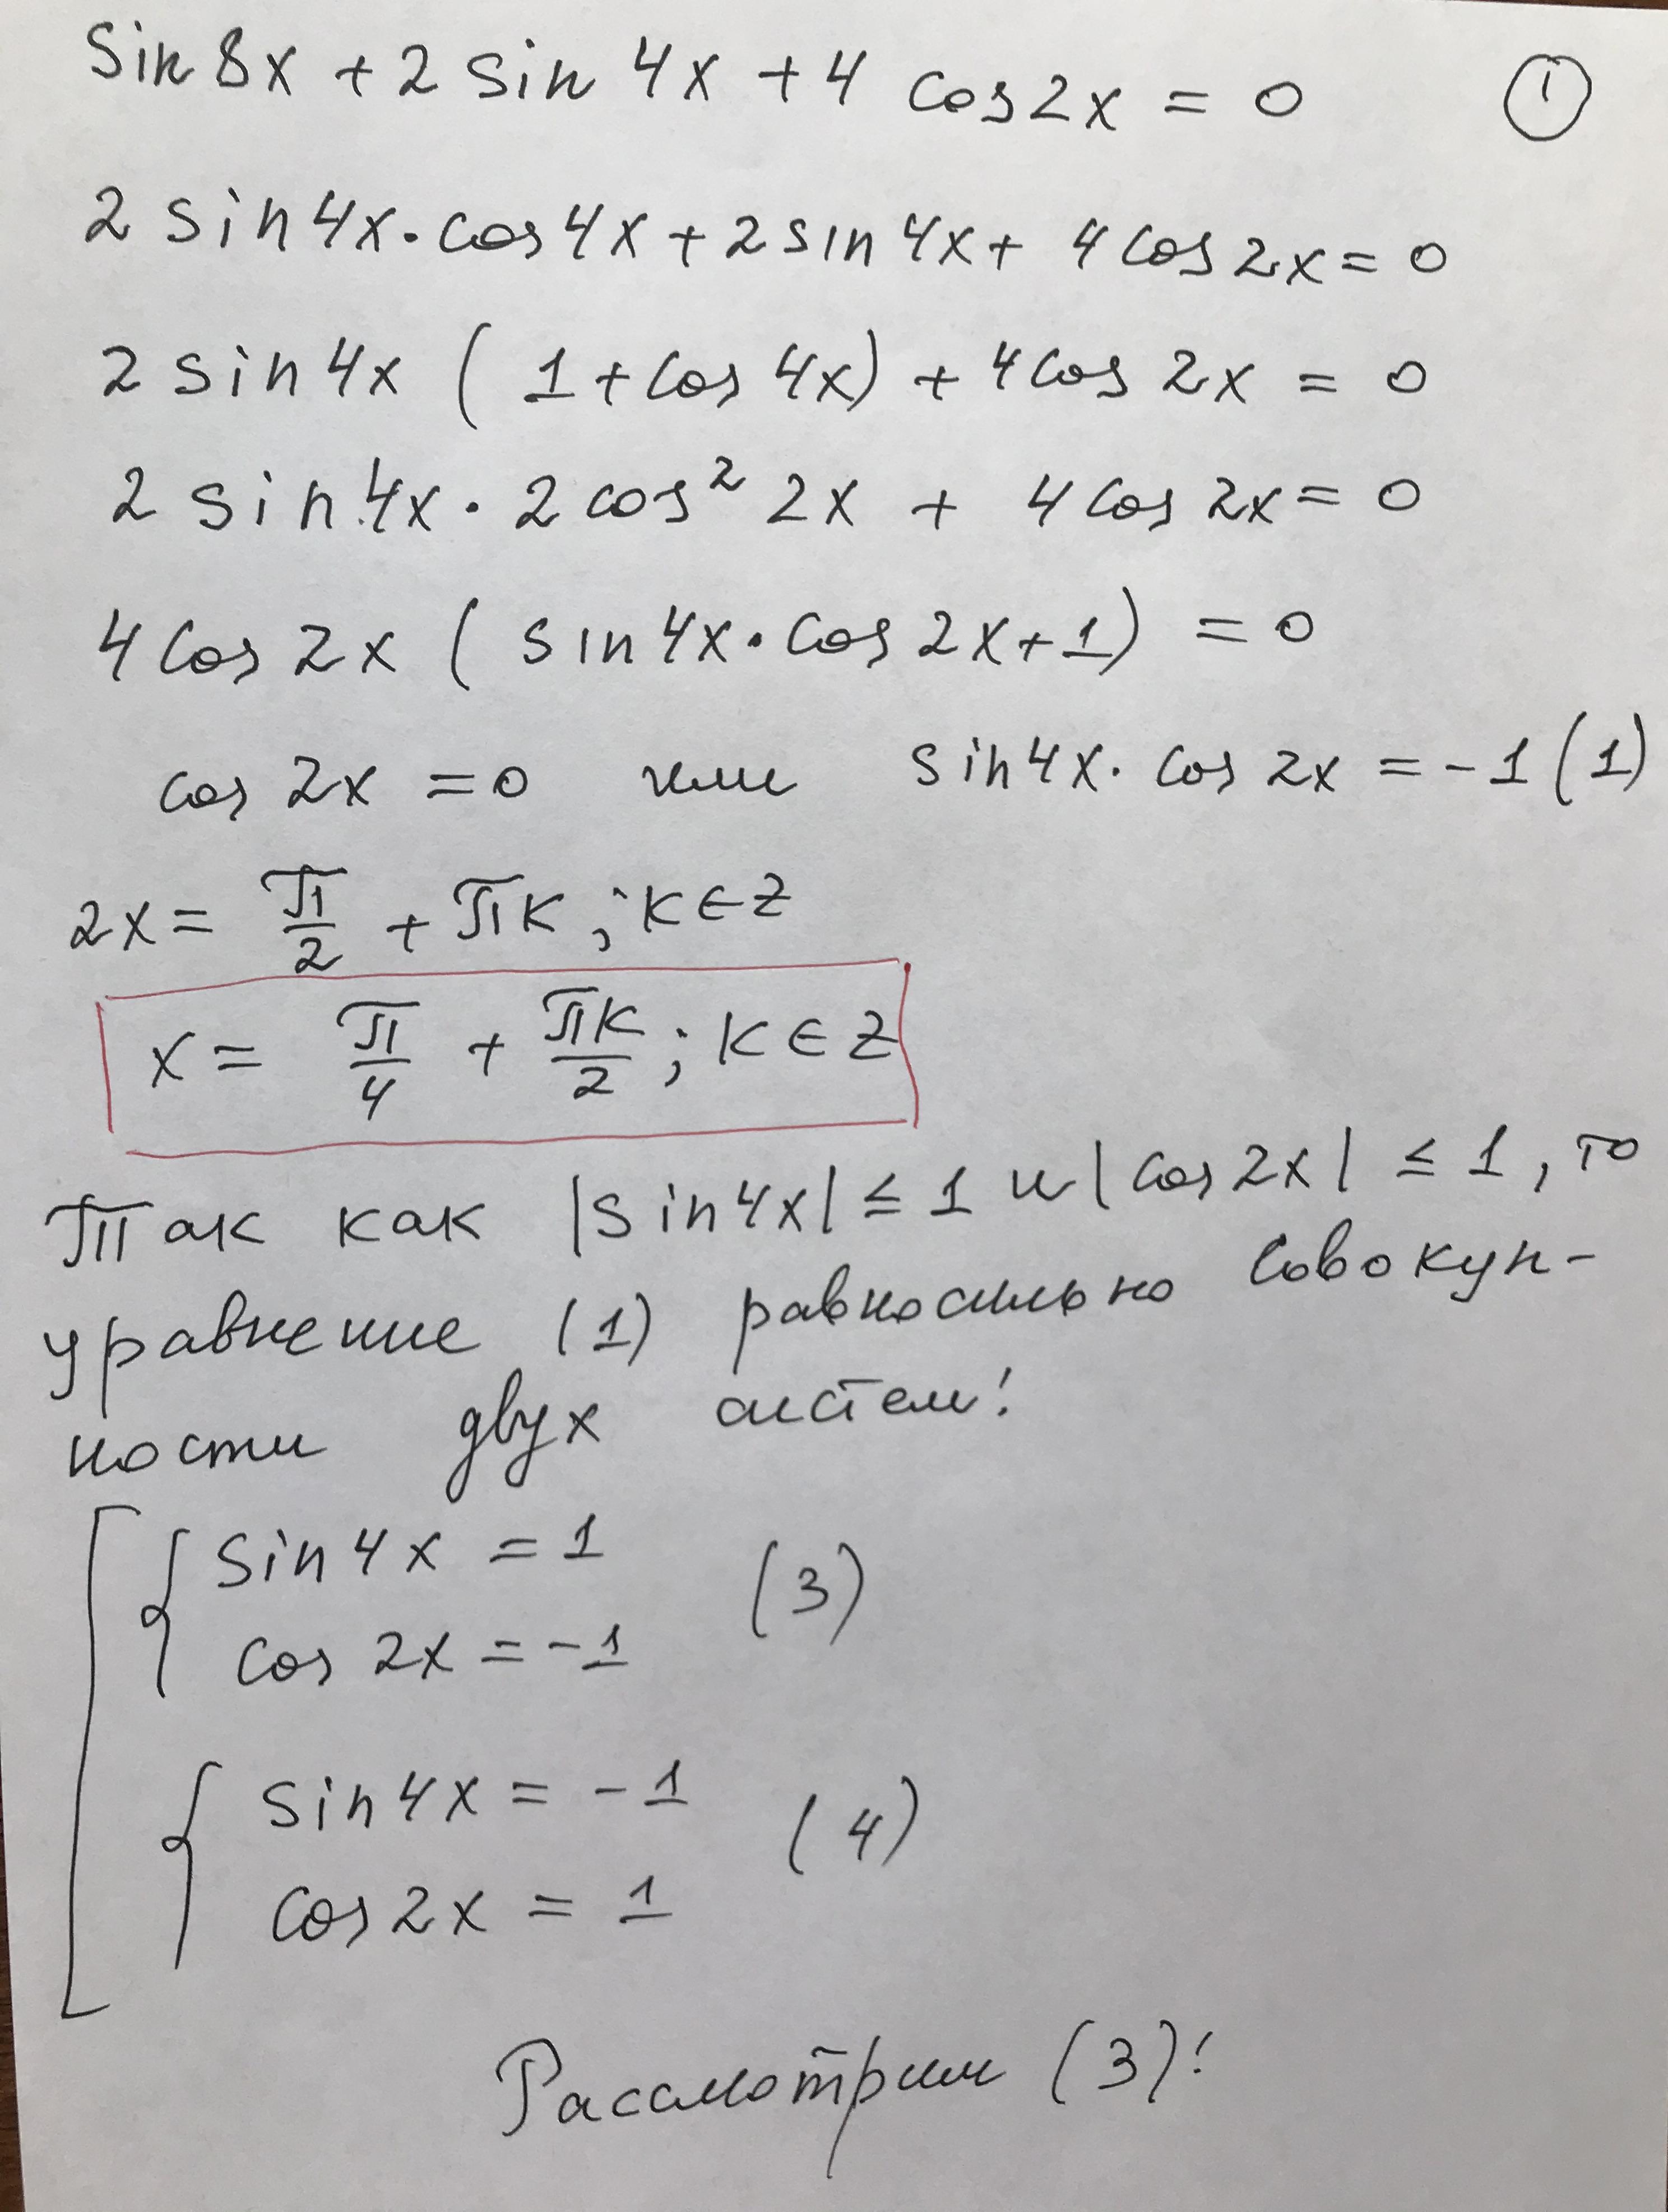 sin 8x + 2 sin 4x + 4 cos 2x = 0 ①
2 sin 4x · cos 4x + 2 sin 4x + 4 cos 2x = 0
2 sin 4x (1 + cos 4x) + 4 cos 2x = 0
2 sin 4x · 2 cos² 2x + 4 cos 2x = 0
4 cos 2x (sin 4x · cos 2x + 1) = 0
cos 2x = 0 или sin 4x · cos 2x = -1 (1)
2x = π/2 + πк; к ∈ Z
x = π/4 + πк/2; к ∈ Z
Так как |sin 4x| ≤ 1 и |cos 2x| ≤ 1, то
уравнение (1) равносильно совокуп-
ности двух систем:
sin 4x = 1
cos 2x = -1 (3)
sin 4x = -1
cos 2x = 1 (4)
Рассмотрим (3):